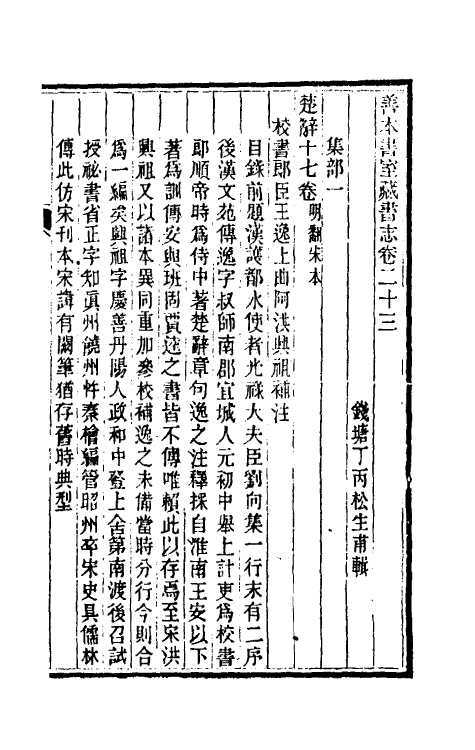 善本書室藏書志卷二十三
錢塘丁丙松生甫輯
集部一
楚辭十七卷 明翻宋本
校書郎臣王逸上曲阿洪興祖補注
目錄前題漢護都水使者光祿大夫臣劉向集一行末有二序
後漢文苑傳逸字叔師南郡宜城人元初中舉上計吏爲校書
郎順帝時爲侍中著楚辭章句逸之注釋採自淮南王安以下
著爲訓傳安與班固賈逵之書皆不傳唯賴此以存焉至宋洪
興祖又以諸本異同重加參校補逸之未備當時分行今則合
爲一編矣興祖字慶善丹陽人政和中登上舍第南渡後召試
授祕書省正字知眞州饒州忤秦檜編管昭州卒宋史具儒林
傳此仿宋刊本宋諱有闕筆猶存舊時典型